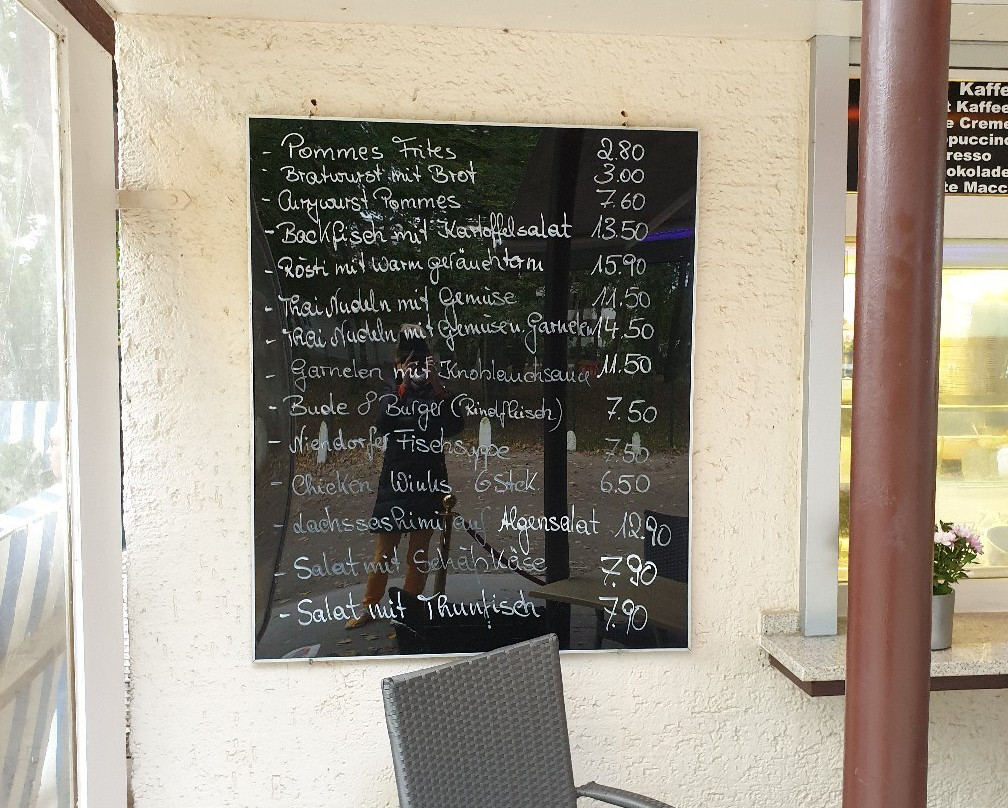 - Pommes Frites 2.80
- Bratwurst mit Brot 3.00
- Currywurst Pommes 7.60
- Backfisch mit Kartoffelsalat 13.50
- Rösti mit warm 15.90
- Thai Nudeln mit Gemüse 11.50
- Thai Nudeln mit Gemüse n. Garnelen 14.50
- Garnelen mit Knoblauchsauce 11.50
- Bude 8 Burger (Rindfleisch) 7.50
- Niendorfer Fischsuppe 7.50
- Chicken Winks 6 Stck. 6.50
- Lachssashimi auf Algensalat 12.90
- Salat mit Schähkäse 7.90
- Salat mit Thunfisch 7.90
Kaffe
t Kaffee
e Creme
ppuccino
resso
okolade
te Macc